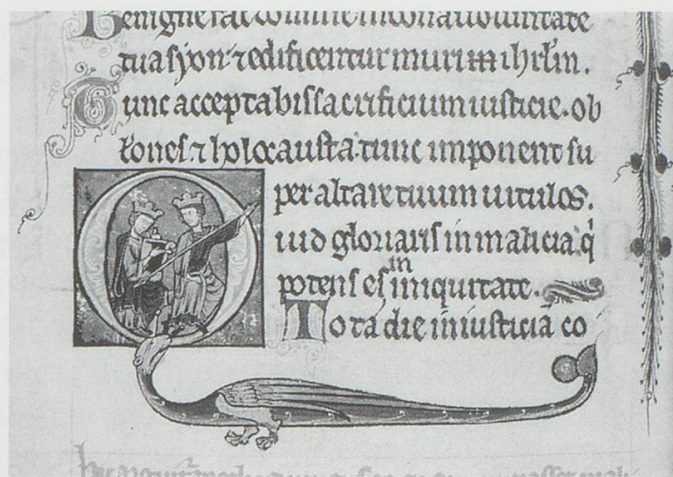 Benigne fac domine in bona uoluntate
tua syon· ⁊ edificentur muri ihrlm̄.
Tunc acceptabis sacrificium iusticie· ob
lōnes ⁊ holocausta· tunc imponent su
per altare tuum uitulos.
Quid gloriaris in malicia· qͥ
potens es in iniquitate·
Tota die iniusticiā co